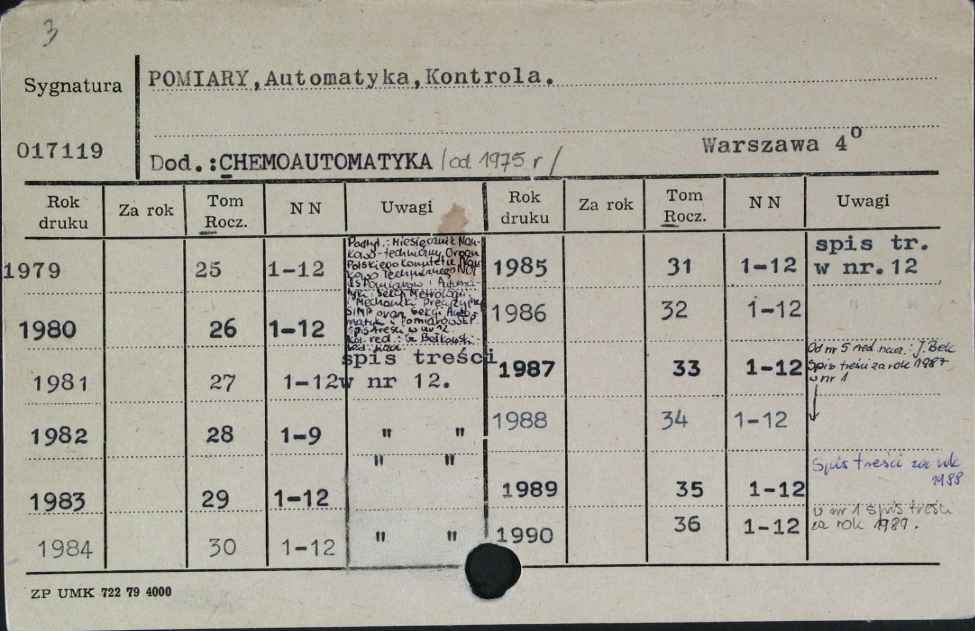 3
Sygnatura
POMIARY, Automatyka, Kontrola.
017119
Warszawa 4°
Dod.: CHEMOAUTOMATYKA /od 1975 r/
Rok druku Za rok Tom Rocz. N N Uwagi Rok druku Za rok Tom Rocz. N N Uwagi
1979 25 1-12 Podtyt.: Miesięcznik Nau-
kowo-techniczny Organ
Polskiego Komitetu Nau
kowo Technicznego NOT
Pomiarów i Automa-
tyki Sekcji Metrologii
i Mechaniki Precyzyjnej
SIMP oraz Sekcji Auto
matyki i Pomiarów SEP
Spis treści w nr 12
1980 26 1-12
1981 27 1-12 spis treści
w nr 12.
1982 28 1-9 " "
" "
1983 29 1-12
1984 30 1-12 " "
1985 31 1-12 spis tr.
w nr. 12
1986 32 1-12 " "
1987 33 1-12 Od nr 5 red. nacz.: J. Bek
Spis treści za rok 1987
w nr 1
1988 34 1-12
Spis treści za rok
1988
1989 35 1-12
w nr 1 spis treści
za rok 1989.
1990 36 1-12
ZP UMK 722 79 4000